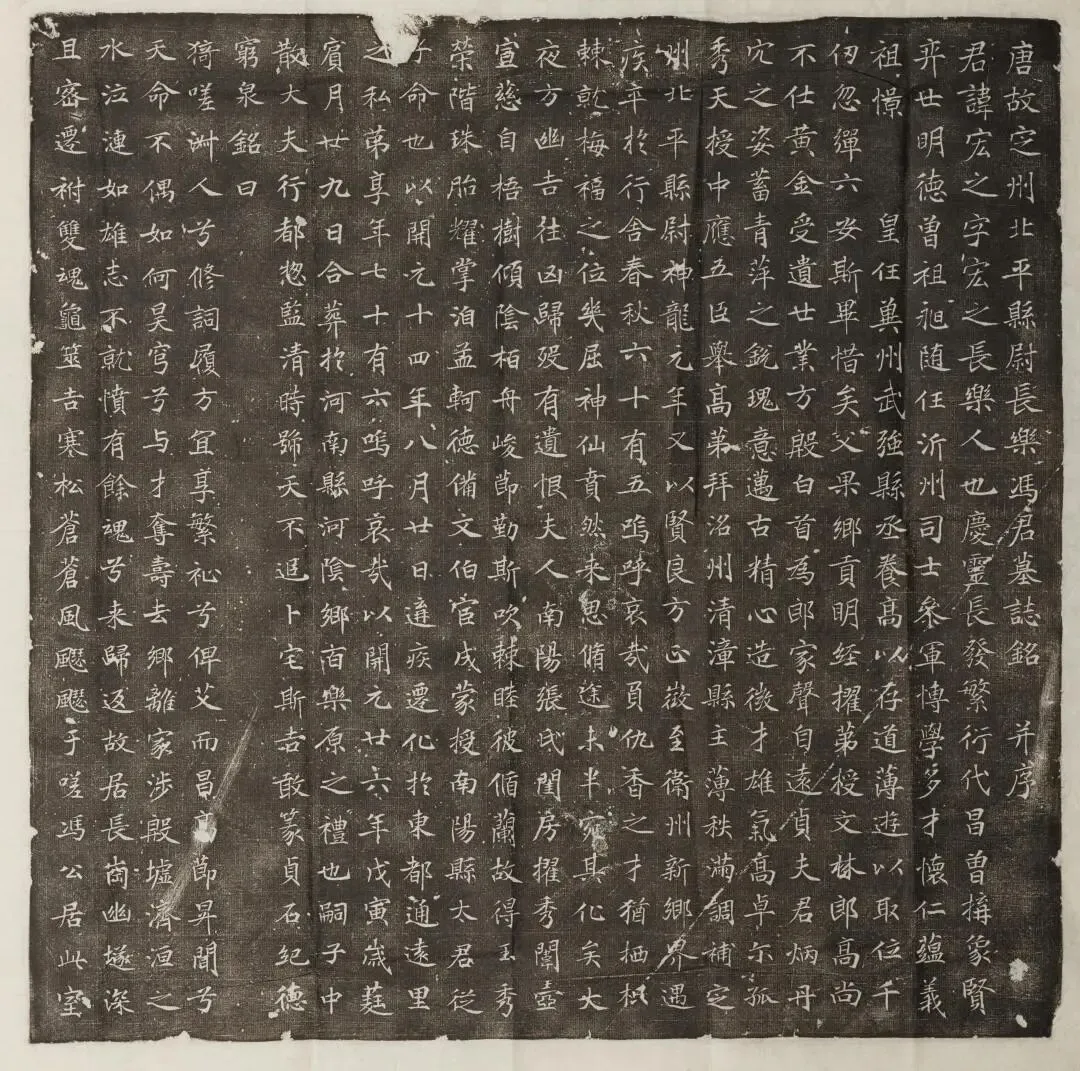 唐故定州北平縣尉長樂馮君墓誌銘 并序
君諱宏之字宏之長樂人也慶靈長發繁衍代昌曾搆象賢
弈世明德曾祖昶随任沂州司士叅軍博學多才懷仁蘊義
祖憬 皇任兾州武強縣丞養高以存道薄遊以取位千
仞忽殫六安斯畢惜矣父果鄉貢明経擢第授文林郎高尚
不仕黃金受遺廿業方殷白首為郎家聲自遠貞夫君炳丹
穴之姿蓄青萍之銳瑰意邁古精心造微才雄氣高卓尓孤
秀天授中應五臣舉高第拜洺州清漳縣主薄秩滿調補定
州北平縣尉神龍元年又以賢良方正徵至衛州新鄉界遇
疾卒於行舍春秋六十有五嗚呼哀哉負仇香之才猶栖枳
棘乾梅福之位幾屈神仙賁然来思脩途未半宛其化矣大
夜方幽吉往凶歸歿有遺恨夫人南陽張氏閨房擢秀閫壼
宣慈自梧樹傾陰柏舟峻節勤斯吹棘睦彼脩蘭故得玉秀
榮階珠胎耀掌洎孟軻德俻文伯官成蒙授南陽縣太君從
子命也以開元十四年八月廿日遘疾遷化於東都通遠里
之私第享年七十有六嗚呼哀哉以開元廿六年戊寅歲蕤
賓月廿九日合葬於河南縣河陰鄉百樂原之禮也嗣子中
散大夫行都惣監清時號天不逭卜宅斯吉敢篆貞石紀德
窮泉銘曰
猗嗟渊人兮修詞履方宜享繁祉兮俾艾而昌高節昇聞兮
天命不偶如何昊穹兮与才奪壽去鄉離家涉殷墟濟洹之
水泣漣如雄志不就憤有餘魂兮来歸返故居長崗幽壝深
且密遷祔雙魂龜筮吉寒松蒼蒼風颼颼于嗟馮公居此室